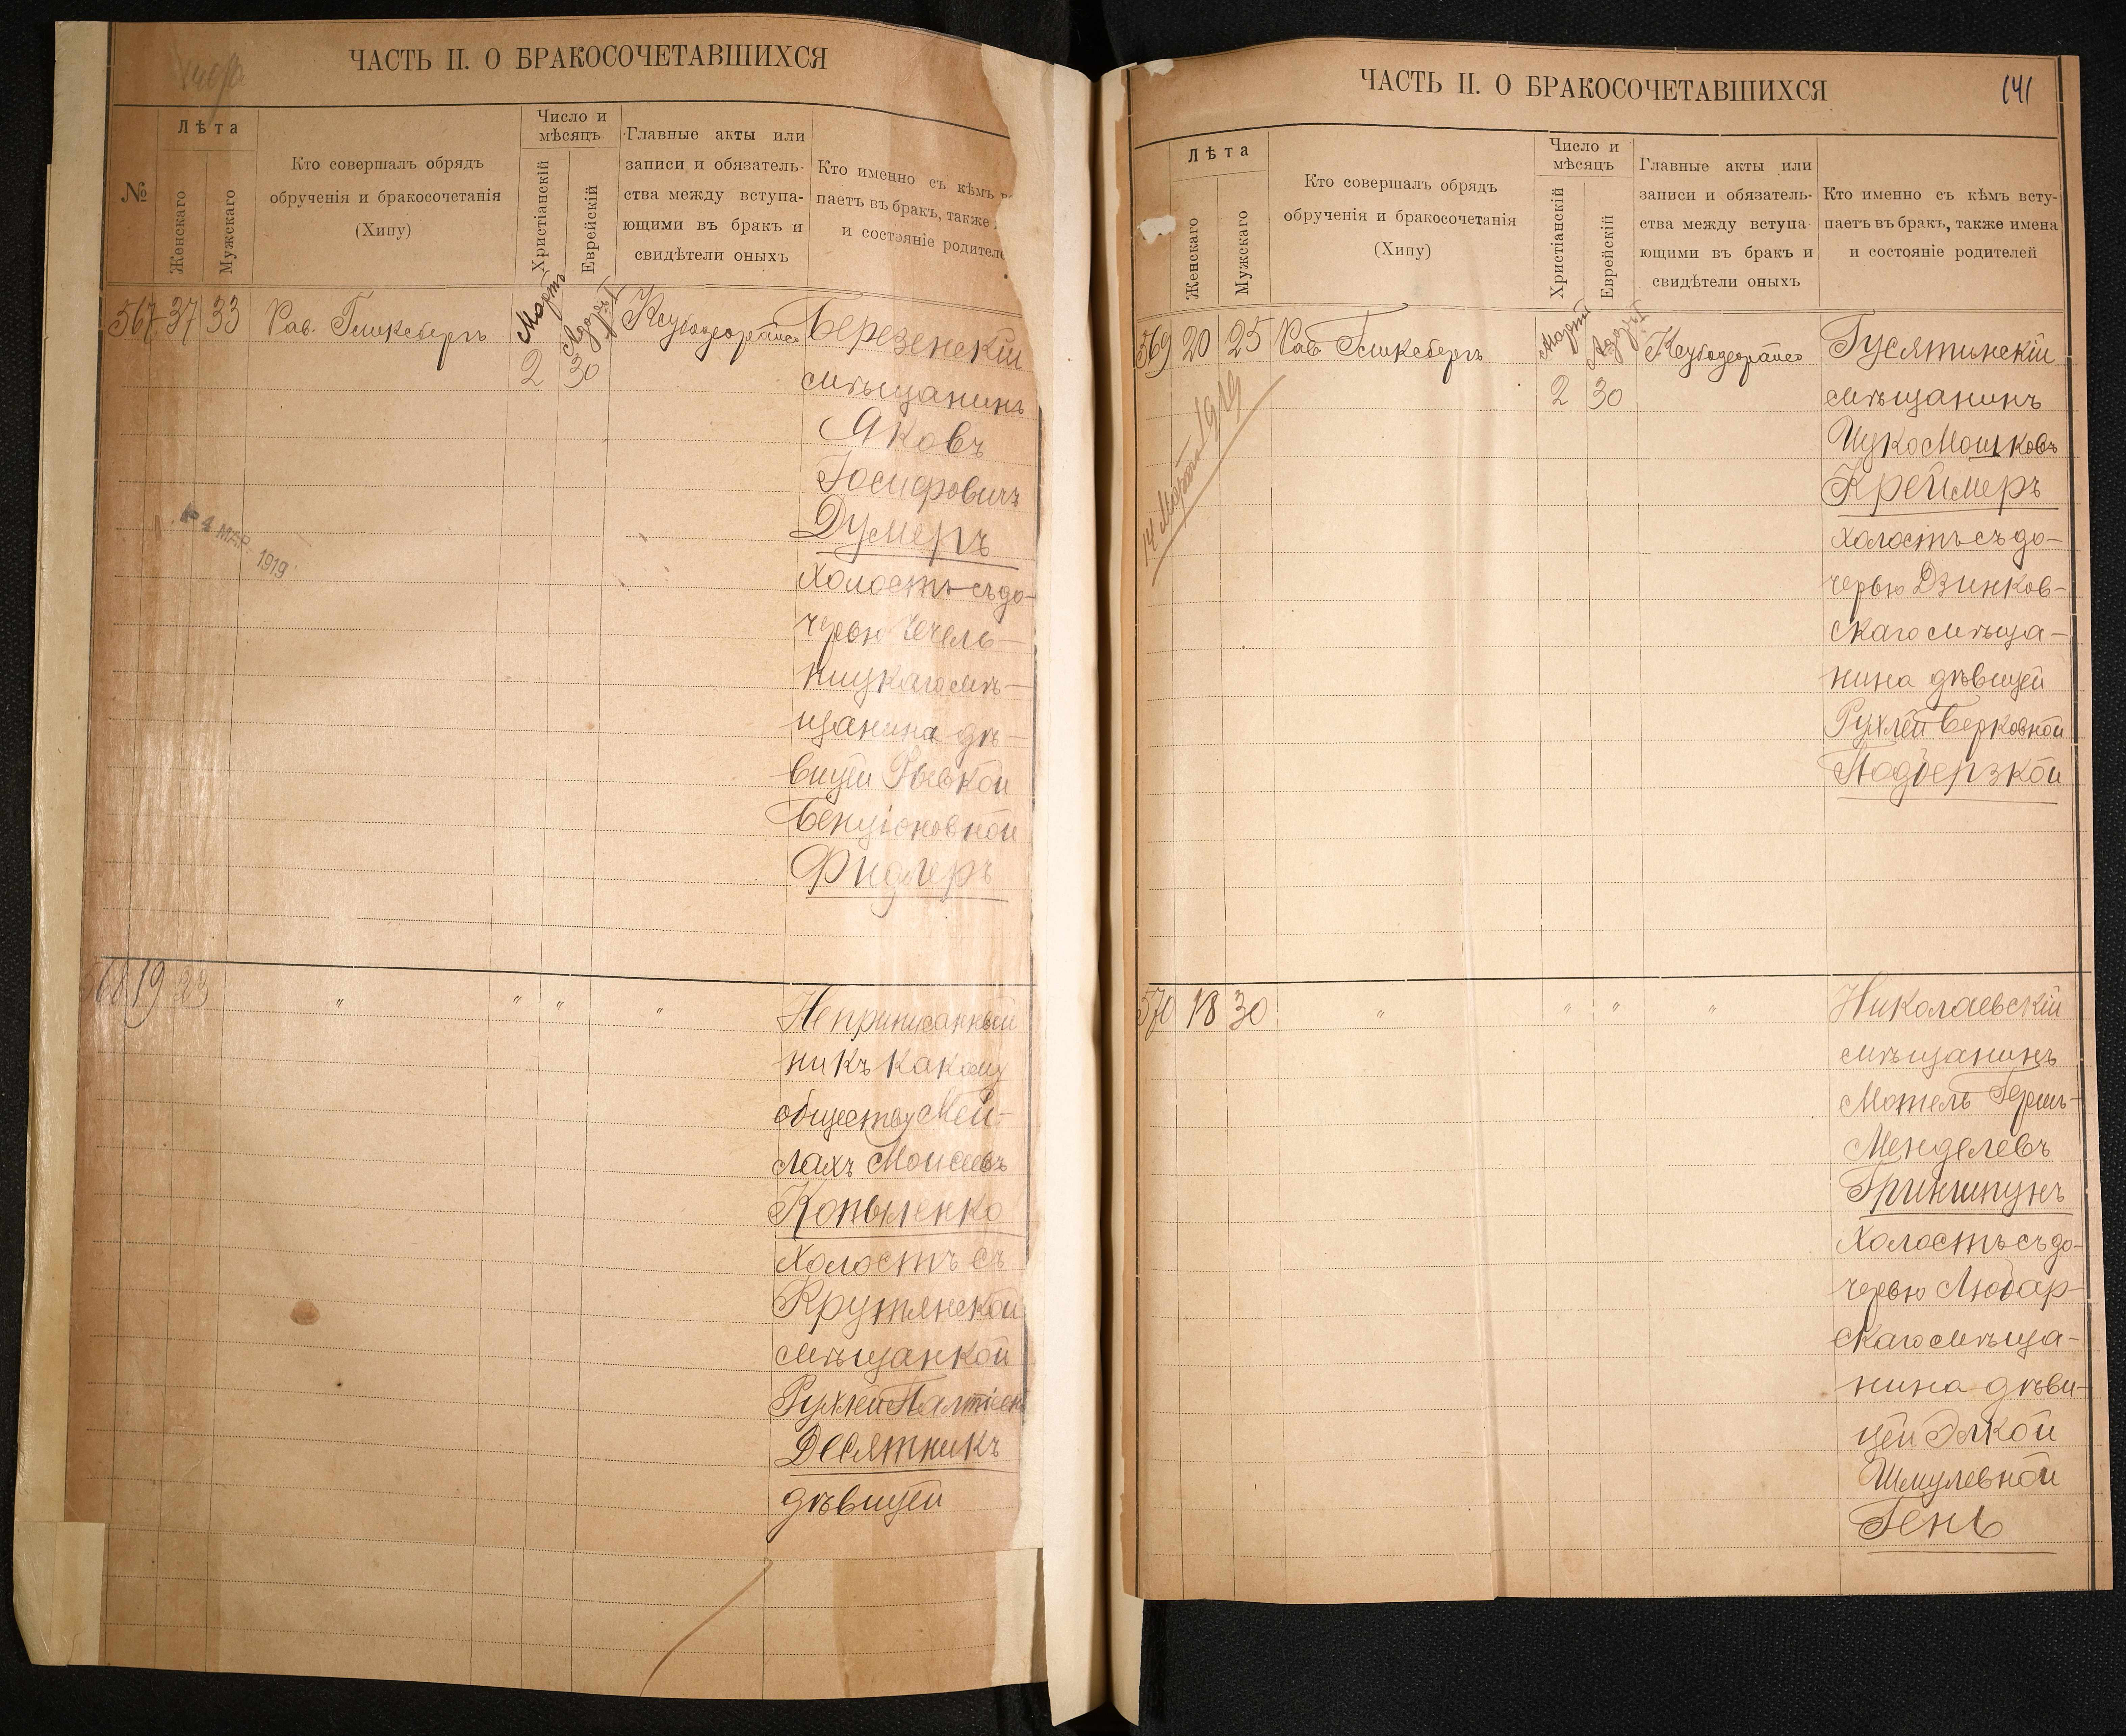 ЧАСТЬ II. О БРАКОСОЧЕТАВШИХСЯ
№
Лѣта
Женскаго
Мужскаго
Кто совершалъ обрядъ
обрученія и бракосочетанія
(Хипу)
Число и
мѣсяцъ
Христіанскій
Еврейскій
Главные акты или
записи и обязатель-
ства между вступа-
ющими въ бракъ и
свидѣтели оныхъ
Кто именно съ кѣмъ в
паетъ въ бракъ, также
и состояніе родителе
567 37 33
Рав. Гликсбергъ
Мартъ
2
Адаръ I
30
Березенскій
мѣщанинъ
Яковъ
Іосифовичъ
Думеръ
холостъ съ до-
черью Чечель-
ницкаго мѣ-
щанина дѣ-
вицей Ривкой
Бенціоновной
Фидлеръ
4 МАР. 1919
568 19 23
" " " "
Неприписанный
ни къ какому
обществу Мей-
лахъ Моисеевъ
Копыленко
холостъ съ
Крутянской
мѣщанкой
Рухлей
Десятникъ
дѣвицей
ЧАСТЬ II. О БРАКОСОЧЕТАВШИХСЯ
141
Лѣта
Женскаго
Мужскаго
Кто совершалъ обрядъ
обрученія и бракосочетанія
(Хипу)
Число и
мѣсяцъ
Христіанскій
Еврейскій
Главные акты или
записи и обязатель-
ства между вступа-
ющими въ бракъ и
свидѣтели оныхъ
Кто именно съ кѣмъ всту-
паетъ въ бракъ, также имена
и состояніе родителей
569 20 25
Рав. Гликсбергъ
Мартъ
2
Адаръ I
30
14 Марта 1919
Гусятинскій
мѣщанинъ
Ицко Мошковъ
Креймеръ
холостъ съ до-
черью Дзинков-
скаго мѣща-
нина дѣвицей
Рухлей Берковной
Подберзкой
570 18 30
" " " "
Николаевскій
мѣщанинъ
Мотель Герш-
Менделевъ
Гриншпунъ
холостъ съ до-
черью Любар-
скаго мѣща-
нина дѣви-
цей Элкой
Шмулевной
Гень